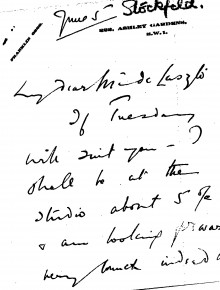 June 5 Stockfeld.
FRANKLIN 6885.
ASHLEY GARDENS,
S.W.1.
My dear Mr de Laszlo
If Tuesday
will suit you - I
shall be at the
studio about 5 o/c
& am looking forward
very much indeed